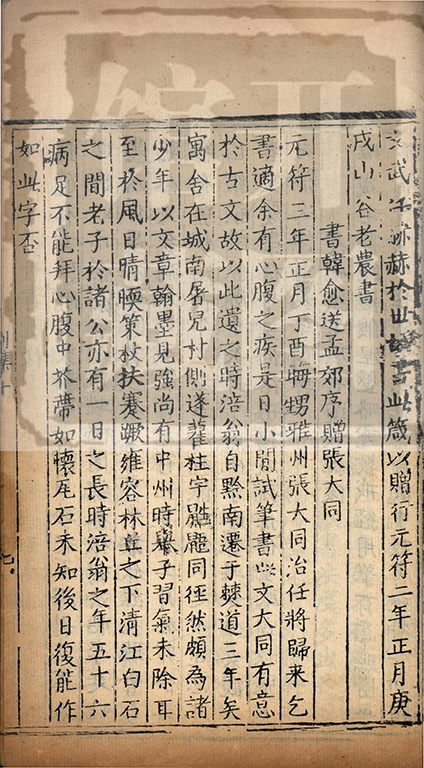 文武　赫赫於　書此箴以贈行元符二年正月庚
戌山谷老農書
書韓愈送孟郊序贈張大同
元符三年正月丁酉晦甥雅州張大同治任將歸来乞
書適余有心腹之疾是日小閒試筆書此文大同有意
於古文故以此遺之時涪翁自黔南遷于棘道三年矣
寓舍在城南屠兒村側蓬藋柱宇鼪鼯同徑然頗為諸
少年以文章翰墨見強尚有中州時舉子習氣未除耳
至於風日晴暖策杖扶蹇蹶雍容林丘之下清江白石
之間老子於諸公亦有一日之長時涪翁之年五十六
病足不能拜心腹中芥蔕如懷瓦石未知後日復能作
如此字否